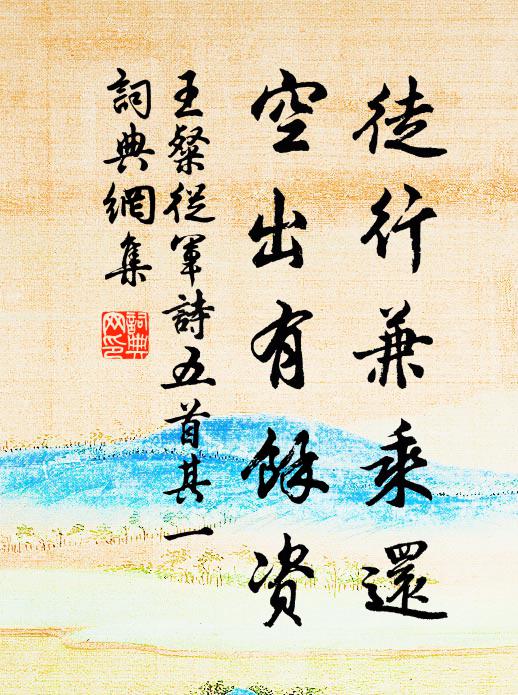 徒行兼乘還
空出有餘資
王粲從軍詩五首其一
詞典網集
詞典
网印